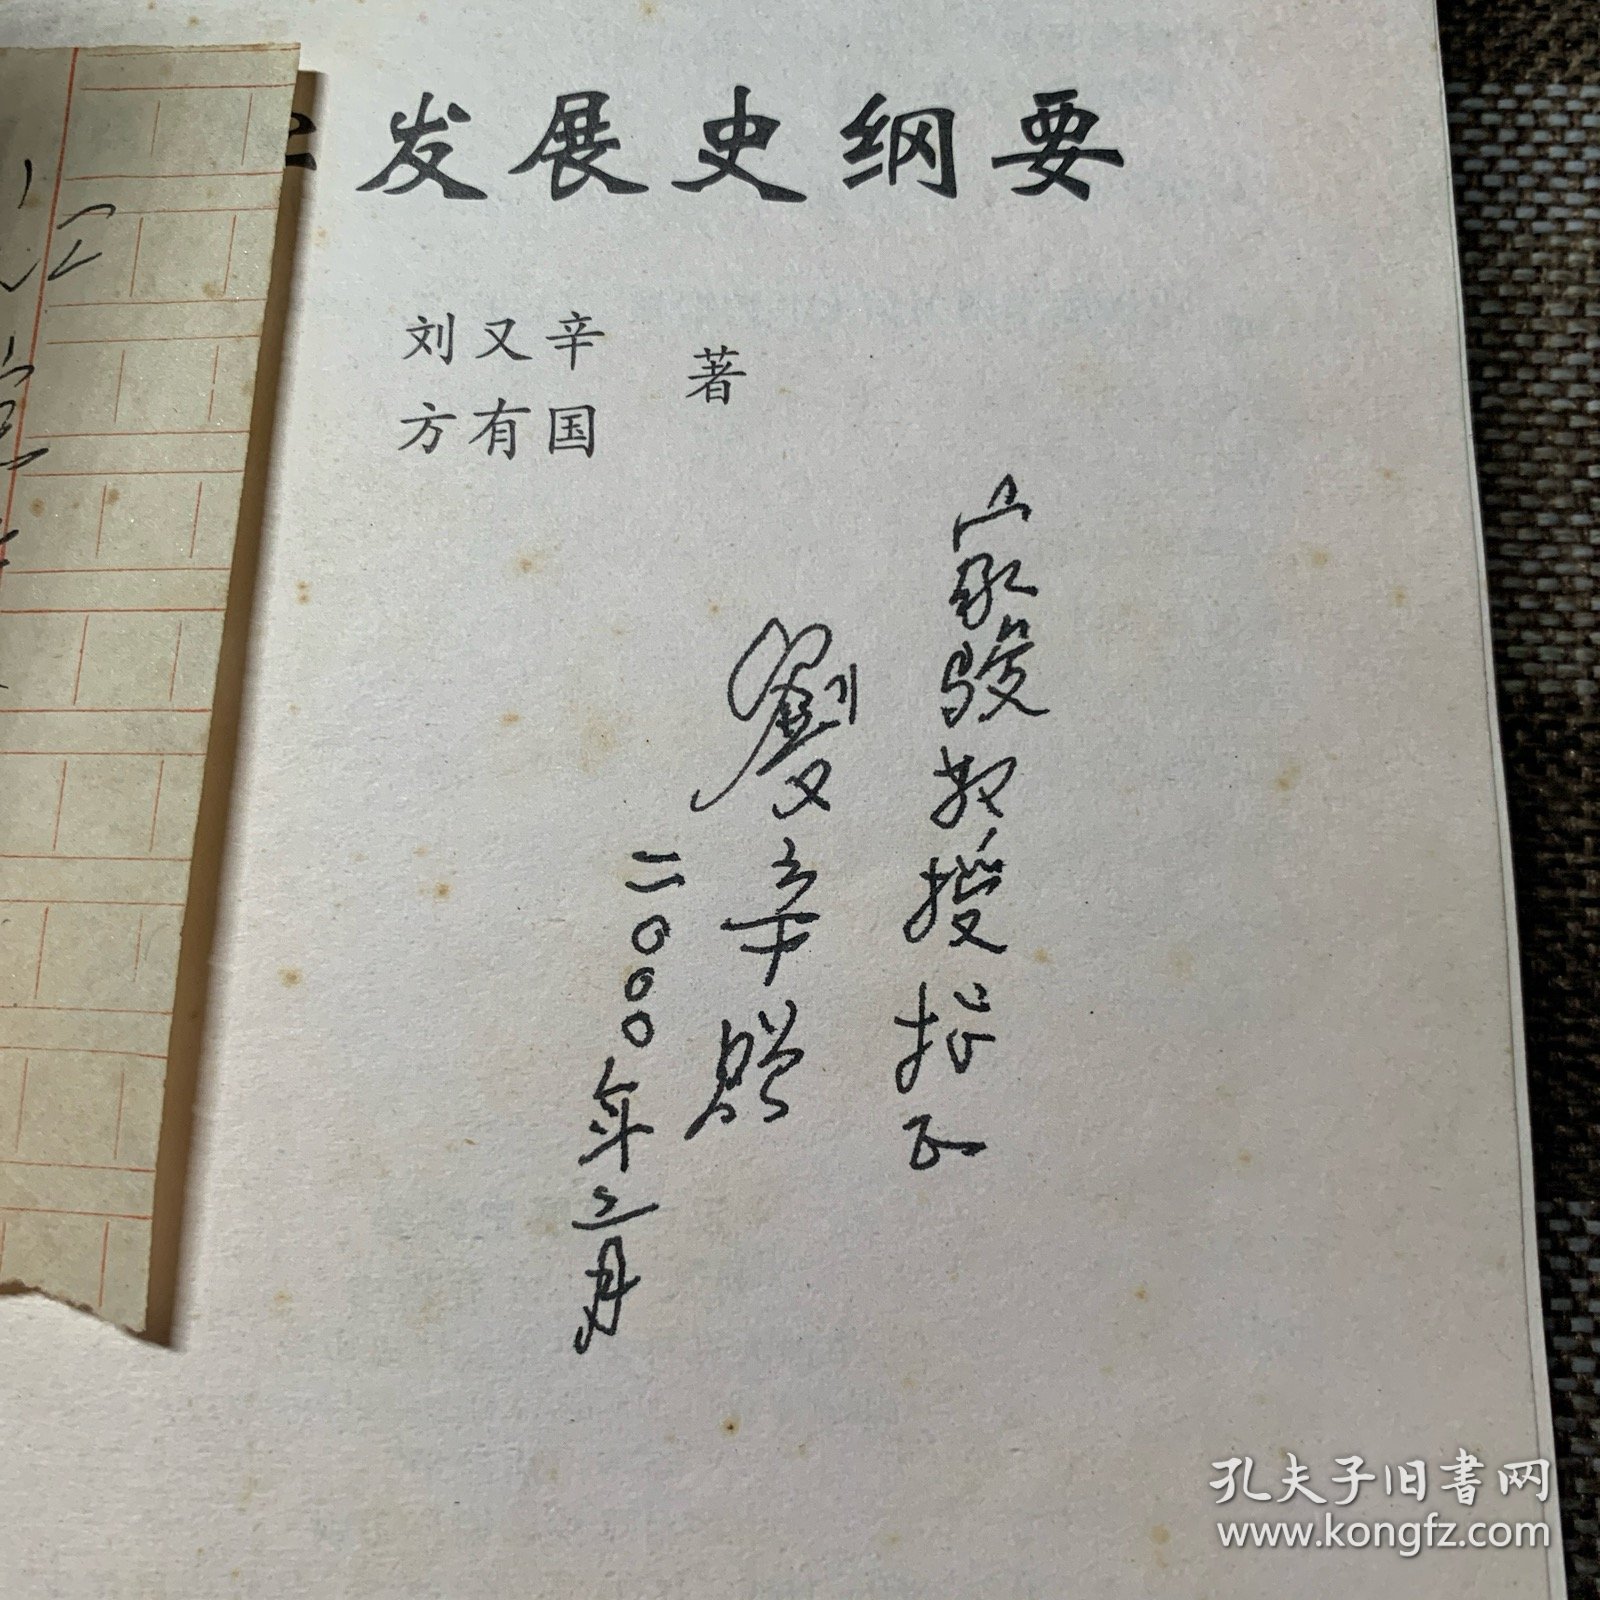 发展史纲要
刘又辛
方有国
著
家骏教授指正
劉又辛贈
二〇〇〇年二月
孔夫子旧书网
www.kongfz.com